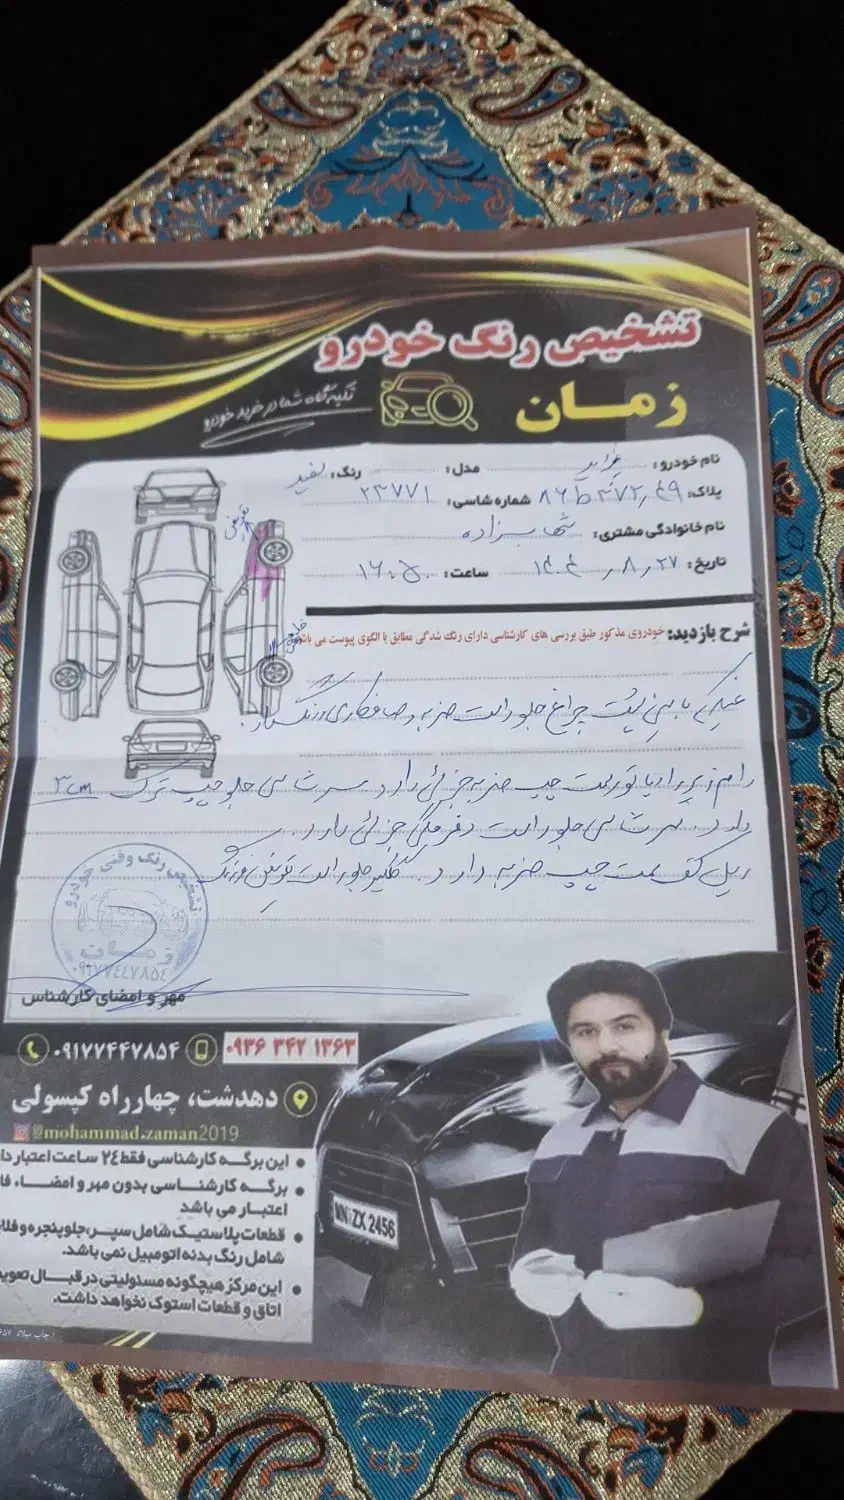 تشخیص رنگ خودرو
زمـان
تکیه گاه شما در خرید خودرو
نام خودرو: پراید مدل: رنگ: سفید
پلاک: ۴۹ ۸۶ شماره شاسی: ۲۳۷۷۱
نام خانوادگی مشتری:
تاریخ: ۲۷ / ۸ / ۱۴۰۴ ساعت: ۱۶:۵۰
تعویض
شرح بازدید: خودروی مذکور طبق بررسی های کارشناسی دارای رنگ شدگی مطابق با الگوی پیوست می باشد
پشت چراغ جلو راست ضربه و صافکاری
رام زیر رادیاتور سمت چپ ضربه جزئی دارد سرشاسی جلو چپ ترک ۳cm
دارد. سرشاسی جلو راست جزئی دارد.
سمت چپ ضربه دارد. گلگیر جلو راست تعویض
تشخیص رنگ وفنی خودرو
زمـان
۰۹۱۷۷۴۴۷۸۵۴
مهر و امضای کارشناس
۰۹۱۷۷۴۴۷۸۵۴ ۰۹۳۶ ۳۴۲ ۱۳۶۳
دهدشت، چهارراه کپسولی
@mohammad.zaman2019
این برگـه کارشناسی فقط ۲۴ ساعت اعتبار
برگـه کارشنـاسـی بدون مهر و امضـاء
اعتبار می باشد
قطعات پلاستیک شامل سپر،جلوپنجره و
شامل رنگ بدنه اتومبیل نمی باشد.
این مرکز هیچگونه مسئولیتی در قبـال
اتاق و قطعات استوک نخواهد داشت.
MN ZX 2456
چاپ میلاد